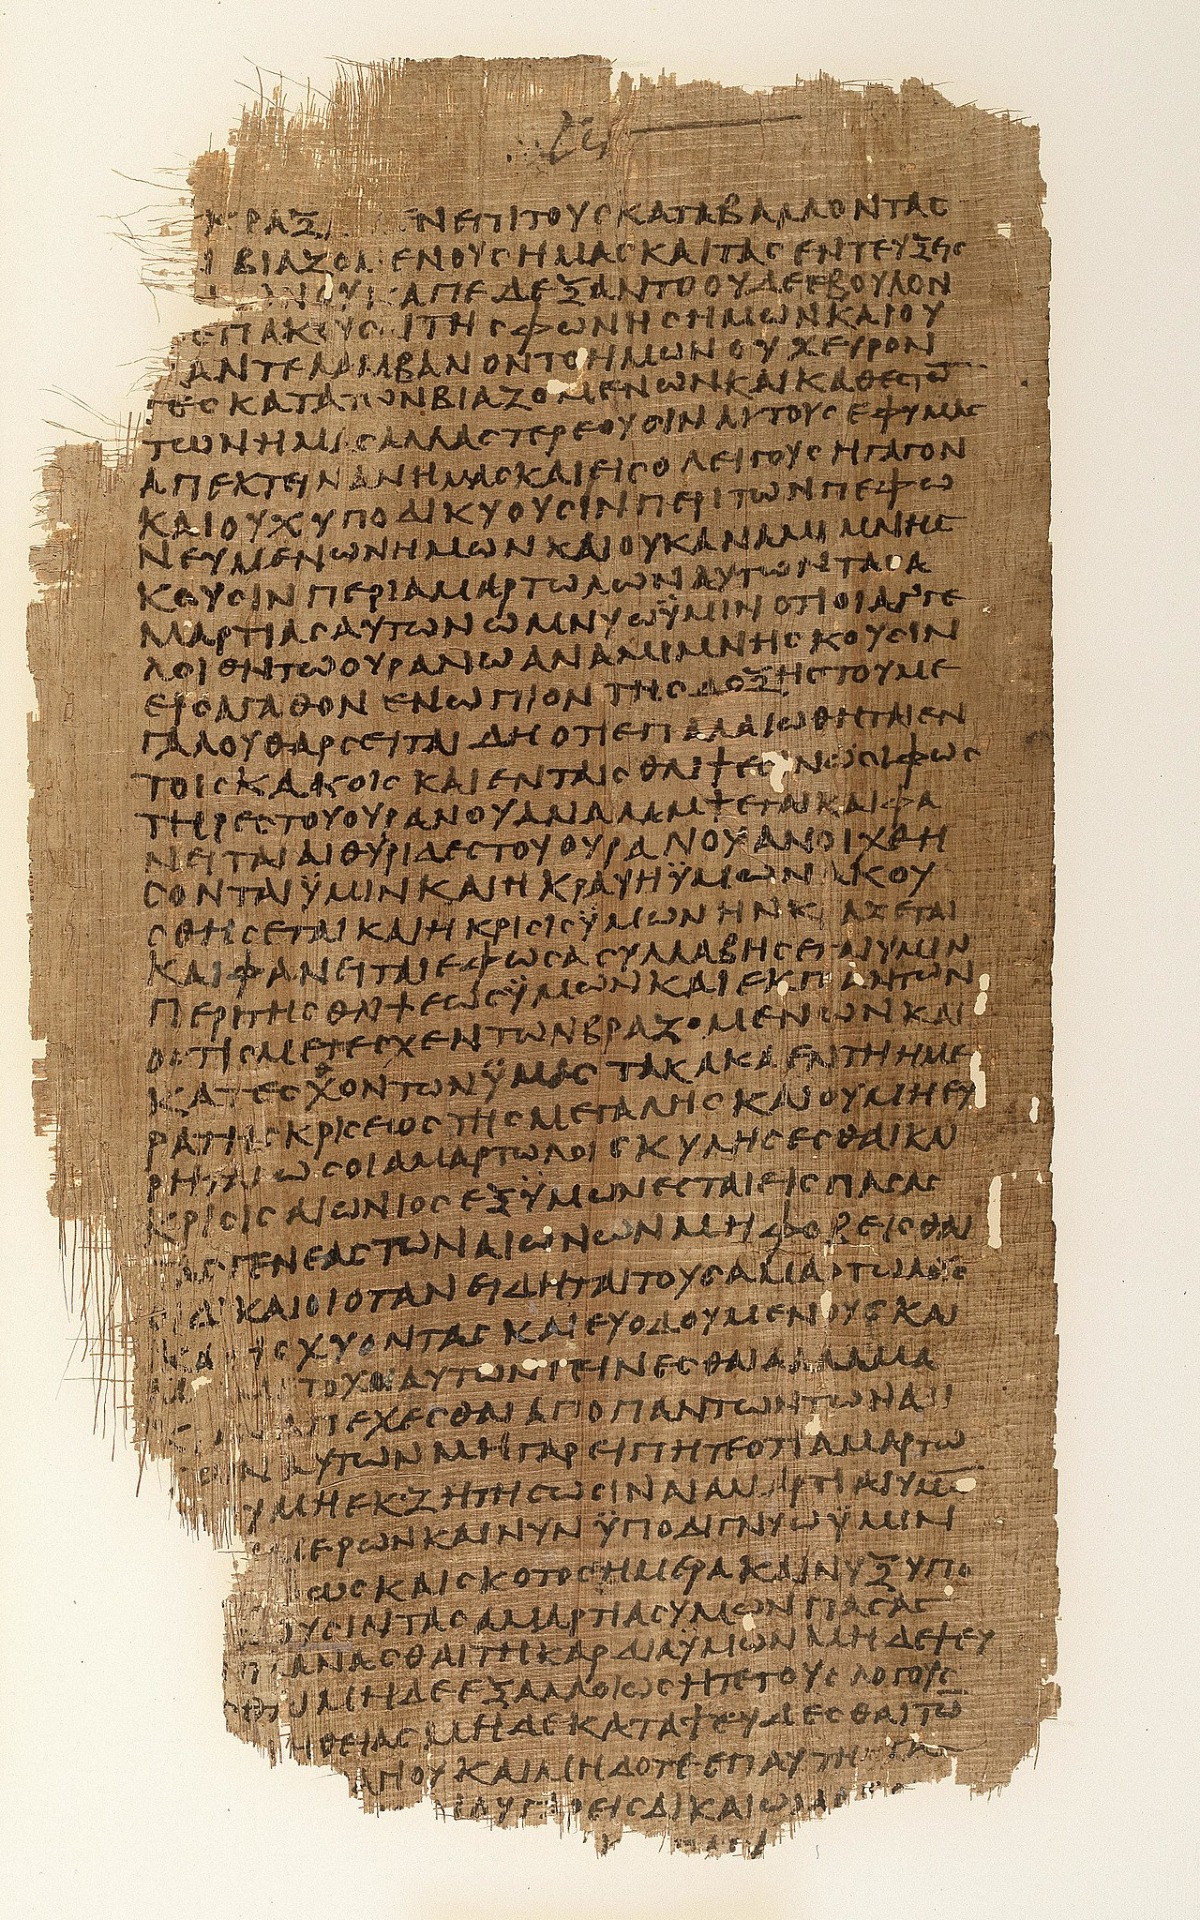 ΕΝΕΠΙΤΟΥϹΚΑΤΑΒΑΛΛΟΝΤΑϹ
ΒΙΑΖΟΜΕΝΟΥϹΗΜΑϹΚΑΙΤΑϹΕΝΤΕΥΞΕΙϹ
ΑΠΕΔΕΞΑΝΤΟΟΥΔΕΕΒΟΥΛΟΝ
ΕΠΑΚΟΥϹΑΙΤΗϹΦΩΝΗϹΗΜΩΝΚΑΙΟΥ
ΑΝΤΕΛΑΜΒΑΝΟΝΤΟΗΜΩΝΟΥΧΕΥΡΟΝ
ΤΕϹΚΑΤΑΤΩΝΒΙΑΖΟΜΕΝΩΝΚΑΙΚΑΘΕϹΤΩ̅
ΤΩΝΗΜΑϹΑΛΛΑϹΤΕΡΕΟΥϹΙΝΑΥΤΟΥϹΕΦΥΜΑϹ
ΑΠΕΚΤΕΙΝΑΝΗΜΑϹΚΑΙΕΙϹΟΛΕΙΓΟΥϹΗΓΑΓΟΝ
ΚΑΙΟΥΧΥΠΟΔΙΚΥΟΥϹΙΝΠΕΡΙΤΩΝΠΕΦΩ
ΝΕΥΜΕΝΩΝΗΜΩΝΚΑΙΟΥΚΑΝΑΜΙΜΝΗϹ
ΚΟΥϹΙΝΠΕΡΙΑΜΑΡΤΩΛΩΝΑΥΤΩΝΤΑϹΑ
ΜΑΡΤΙΑϹΑΥΤΩΝΩΜΝΥΩΫΜΙΝΟΤΙΟΙΑΓΓΕ
ΛΟΙΕΝΤΩΟΥΡΑΝΩΑΝΑΜΙΜΝΗϹΚΟΥϹΙΝ
ΕΙϹΑΓΑΘΟΝΕΝΩΠΙΟΝΤΗϹΔΟΞΗϹΤΟΥΜΕ
ΓΑΛΟΥΘΑΡϹΕΙΤΑΙΔΗΟΤΙΕΠΑΛΑΙΩΘΗΤΑΙΕΝ
ΤΟΙϹΚΑΚΟΙϹΚΑΙΕΝΤΑΙϹΘΛΙΨΕϹΙΝΩϹΙΦΩϹ
ΤΗΡΕϹΤΟΥΟΥΡΑΝΟΥΑΝΑΛΑΜΨΕΤΑΙΚΑΙΦΑ
ΝΕΙΤΑΙΑΙΘΥΡΙΔΕϹΤΟΥΟΥΡΑΝΟΥΑΝΟΙΧΘΗ
ϹΟΝΤΑΙΫΜΙΝΚΑΙΗΚΡΑΥΗΫΜΩΝΑΚΟΥ
ϹΘΗϹΕΤΑΙΚΑΙΗΚΡΙϹΙϹΫΜΩΝΗΝΚΡΑΖΕΤΑΙ
ΚΑΙΦΑΝΕΙΤΑΙΕΦΩϹΑϹΥΛΛΑΒΗϹΕΤΑΙΥΜΙΝ
ΠΕΡΙΤΗϹΘΛΙΨΕΩϹΫΜΩΝΚΑΙΕΚΠΑΝΤΩΝ
ΟϹΤΙϹΜΕΤΕϹΧΕΝΤΩΝΒΙΑΖΟΜΕΝΩΝΚΑΙ
ΚΑΤΕϹΧΟΝΤΩΝΫΜΑϹΤΑΚΑΚΑΕΝΤΗΗΜΕ
ΡΑΤΗϹΚΡΙϹΕΙΟϹΤΗϹΜΕΓΑΛΗϹΚΑΙΟΥΜΗΕΥ
ΡΗΤΑΙΩϹΟΙΑΜΑΡΤΩΛΟΙϹΚΥΛΗϹΕϹΘΑΙΚΑΙ
ΚΡΙϹΙϹΑΙΩΝΙΟϹΕΞΫΜΩΝΕϹΤΑΙΕΙϹΠΑϹΑϹ
ΤΑϹΓΕΝΕΑϹΤΩΝΑΙΩΝΩΝΜΗΦΟΒΕΙϹΘΑΙ
ΟΙΔΙΚΑΙΟΙΟΤΑΝΕΙΔΗΤΑΙΤΟΥϹΑΜΑΡΤΩΛΟΥϹ
ΚΑΤΙϹΧΥΟΝΤΑϹΚΑΙΕΥΟΔΟΥΜΕΝΟΥϹΚΑΙ
ΤΟΧΟΙΑΥΤΩΝΓΕΙΝΕϹΘΑΙΑΛΛΑΜΑ
ΑΠΕΧΕϹΘΑΙΑΠΟΠΑΝΤΩΝΤΩΝΑΔΙ
ΑΥΤΩΝΜΗΓΑΡΕΙΠΗΤΕΟΤΙΑΜΑΡΤΩ
ΥΜΗΕΚΖΗΤΗϹΩϹΙΝΑΙΑΜΑΡΤΙΑΙΥΜΩ̅
ΜΕΡΩΝΚΑΙΝΥΝΫΠΟΔΙΓΝΥΩΫΜΙΝ
ΩϹΚΑΙϹΚΟΤΟϹΗΜΕΡΑΚΑΙΝΥΞΥΠΟ
ΟΥϹΙΝΤΑϹΑΜΑΡΤΙΑϹΥΜΩΝΠΑϹΑϹ
ΠΛΑΝΑϹΘΑΙΤΗΚΑΡΔΙΑΫΜΩΝΜΗΔΕΨΕΥ
ΜΗΔΕΕΞΑΛΛΟΙΩϹΗΤΕΤΟΥϹΛΟΓΟΥϹ
ΗΘΕΙΑϹΜΗΔΕΚΑΤΑΨΕΥΔΕϹΘΑΙΤΩ̅
ΑΓΙΟΥΚΑΙΜΗΔΟΤΕΕΠΑΥ
ΕΙϹΔΙΚΑΙΩΜΑ